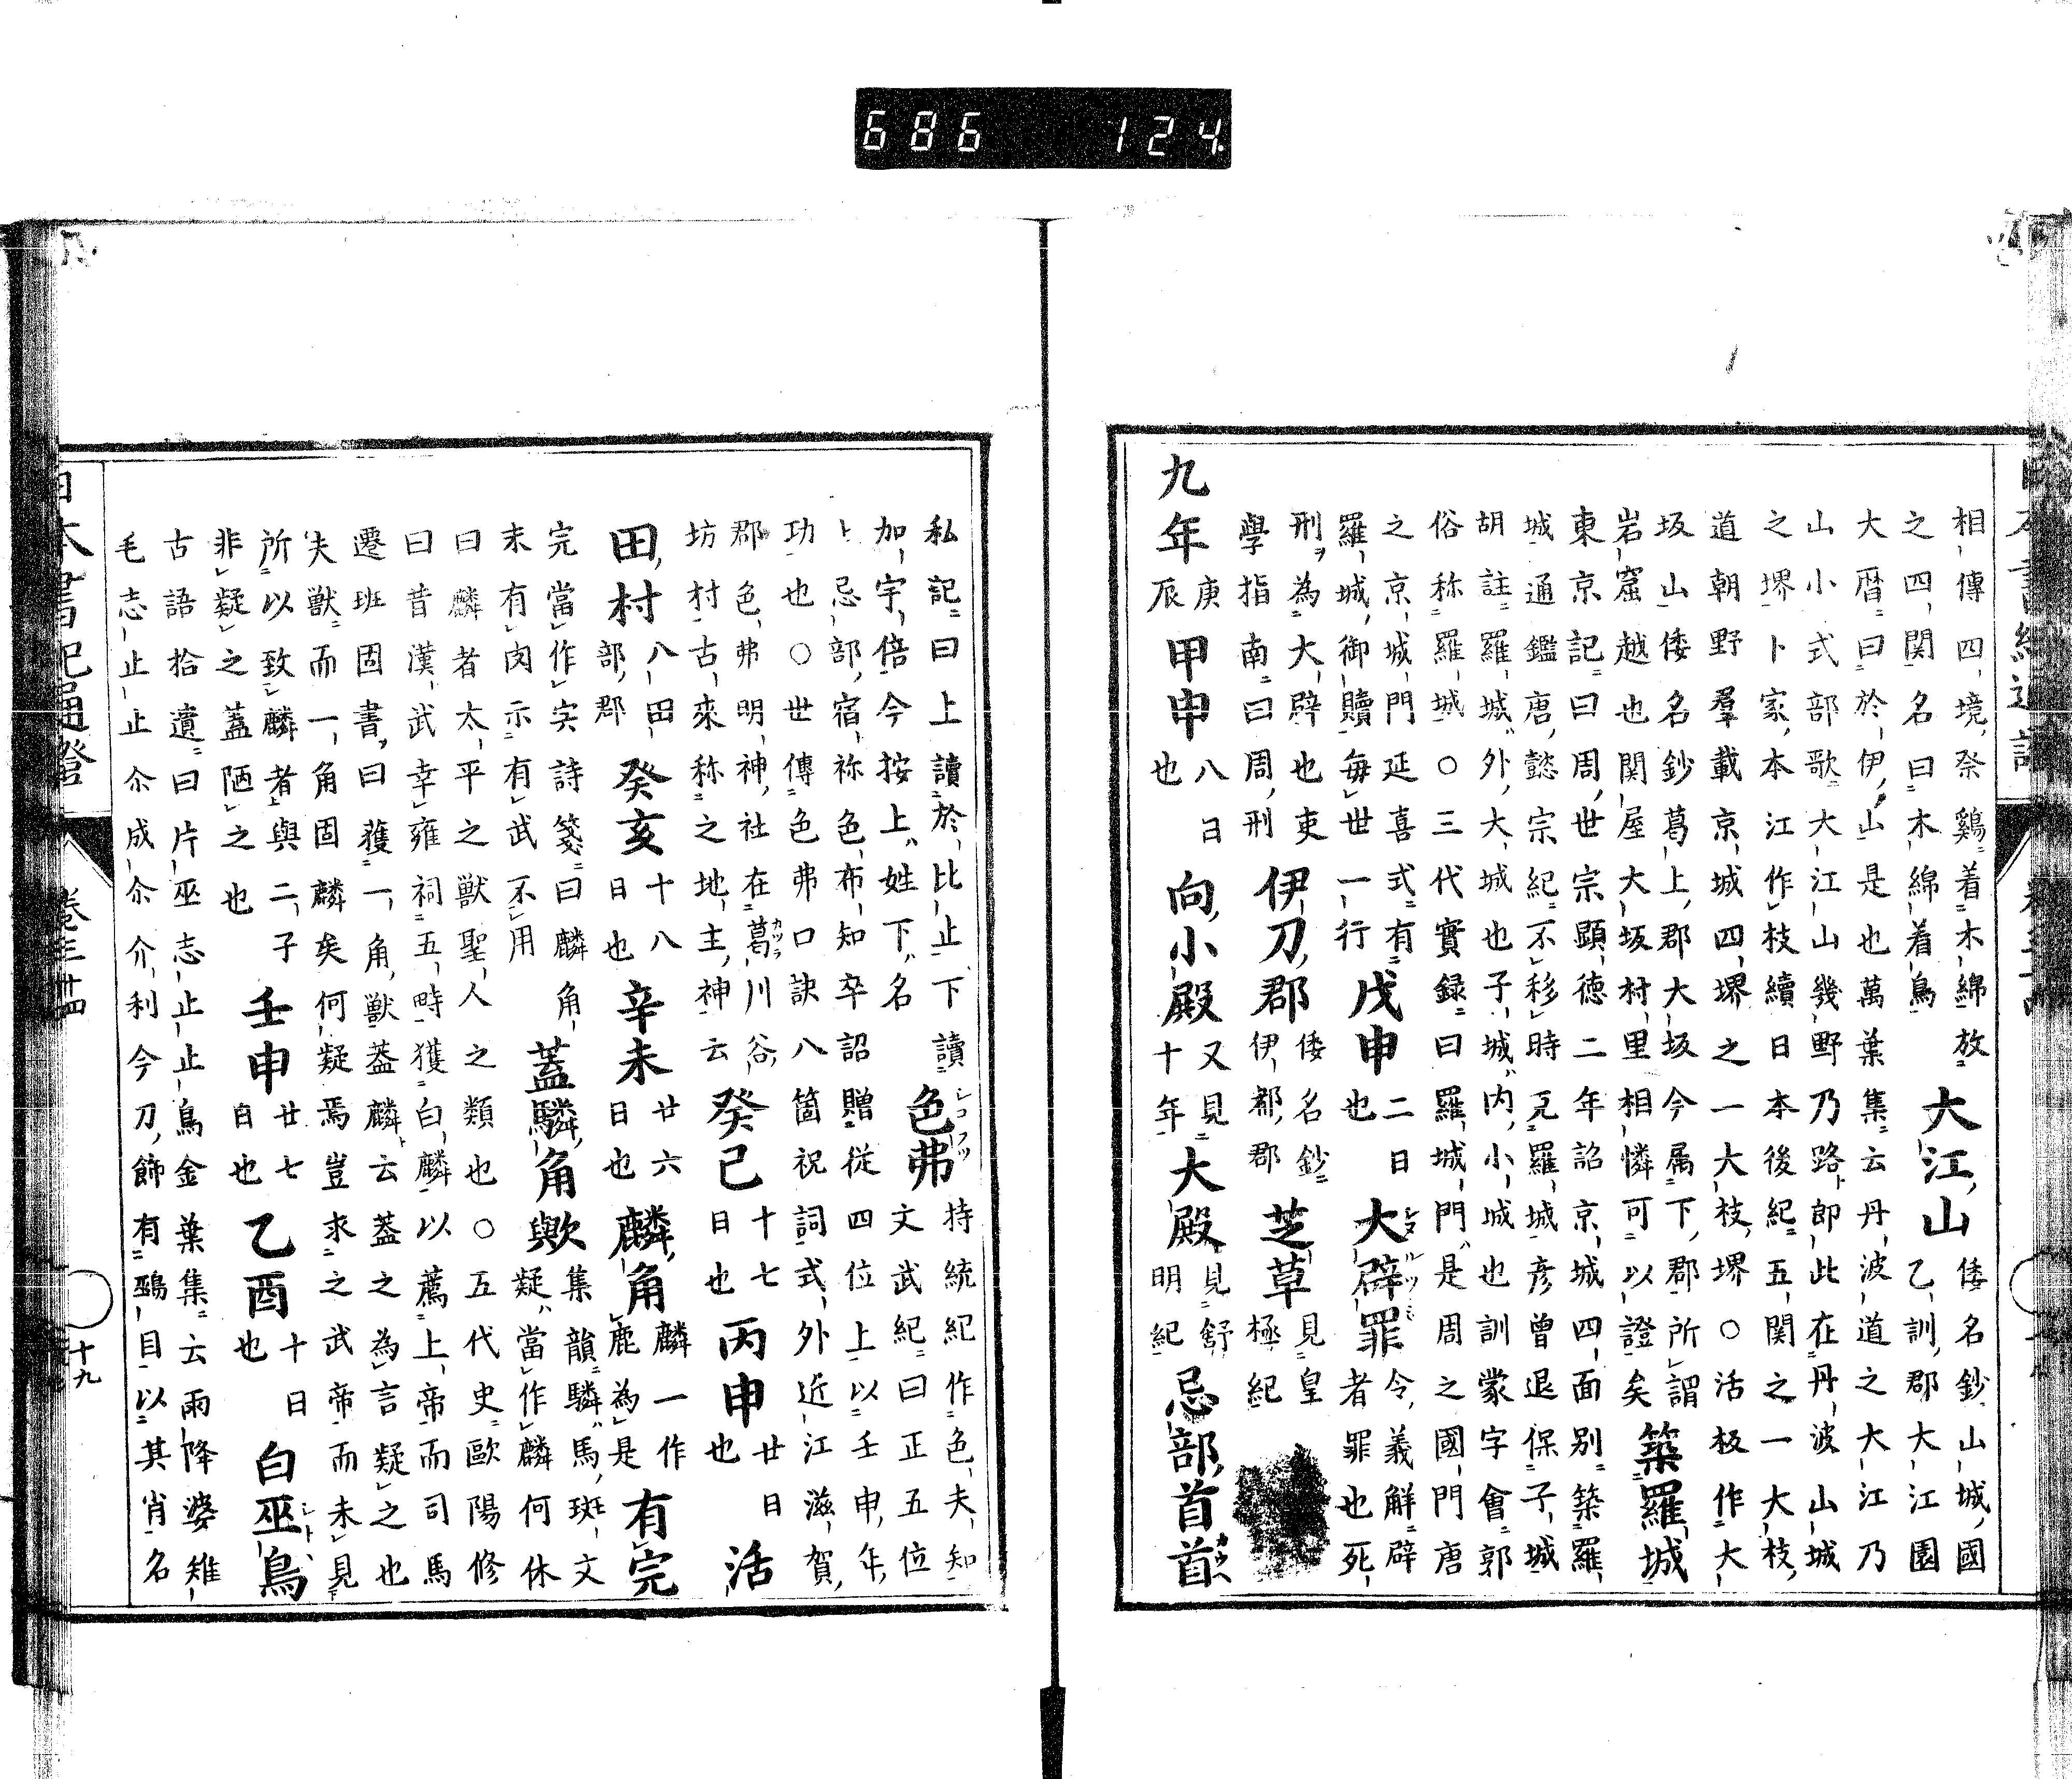 686 124
相傳四境祭鷄着木綿放
之四関名曰木綿着鳥
大江山
倭名鈔山城國
乙訓郡大江園
大暦曰於伊山是也萬葉集云丹波道之大江乃
山小式部歌大江山幾野乃路郎此在丹波山城
之堺卜家本江作枝續日本後紀五関之一大枝
道朝野羣載京城四堺之一大枝堺○活板作大
坂山倭名鈔葛上郡大坂今属下郡所謂
岩窟越也関屋大坂村里相憐可以證矣
築羅城
東京記曰周世宗顕徳二年詔京城四面别築羅
城通鑑唐懿宗紀不移時克羅城彦曽退保子城
胡註羅城外大城也子城内小城也訓蒙字會郭
俗称羅城○三代實録曰羅城門是周之國門唐
之京城門延喜式有
羅城御贖毎世一行
戊申
二日
也
大辟罪
令義解辟
者罪也死
刑為大辟也吏
學指南曰周刑
伊刀郡
倭名鈔
伊都郡
芝草
見皇
極紀
九年
庚
辰
甲申
八日
也
向小殿
又見
十年
大殿
見舒
明紀
忌部首首
私記曰上讀於比止下讀
加宇倍今按上姓下名
色弗
持統紀作色夫知
文武紀曰正五位
ト忌部宿祢色布知卒詔贈従四位上以壬申年
功也○世傳色弗口訣八箇祝詞式外近江滋賀
郡色弗明神社在葛川谷
坊村古來称之地主神云
癸巳
十七
日也
丙申
廿日
也
活
田村
八田
部郡
癸亥
十八
日也
辛未
廿六
日也
麟角
麟一作
鹿為是
有完
完當作宍詩箋曰麟角
末有肉示有武不用
蓋驎角歟
集韻驎馬斑文
疑當作麟何休
曰麟者太平之獸聖人之類也○五代史歐陽修
曰昔漢武幸雍祠五畤獲白麟以薦上帝而司馬
遷班固書曰獲一角獸蓋麟云蓋之為言疑之也
夫獸而一角固麟矣何疑焉豈求之武帝而未見
所以致麟者與二子
非疑之蓋陋之也
壬申
廿七
日也
乙酉
十日
也
白巫鳥
古語拾遺曰片巫志止止鳥金葉集云雨降婆雉
毛志止止尓成尓介利今刀飾有鵐目以其肖名
日本書紀通證
卷三十四
十九